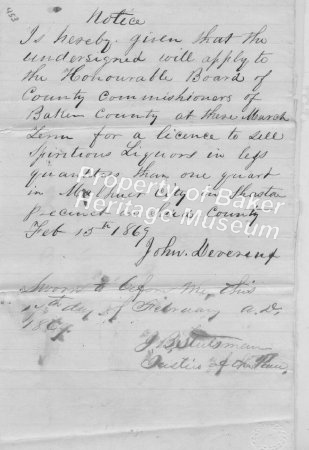 453
Notice
Is hereby given that the
undersigned will apply to
the Honourable Board of
County Commissioners of
Baker County at there March
Term for a licence to sell
Spiritious Liquors in less
quantities than one quart
in City in Shasta
Precinct Baker County
Feb 15th 1869
John Deverent
Sworn to before me this
day of February A.D.
1869
J B Stutsman
Justice of the Peace
Property of Baker
Heritage Museum